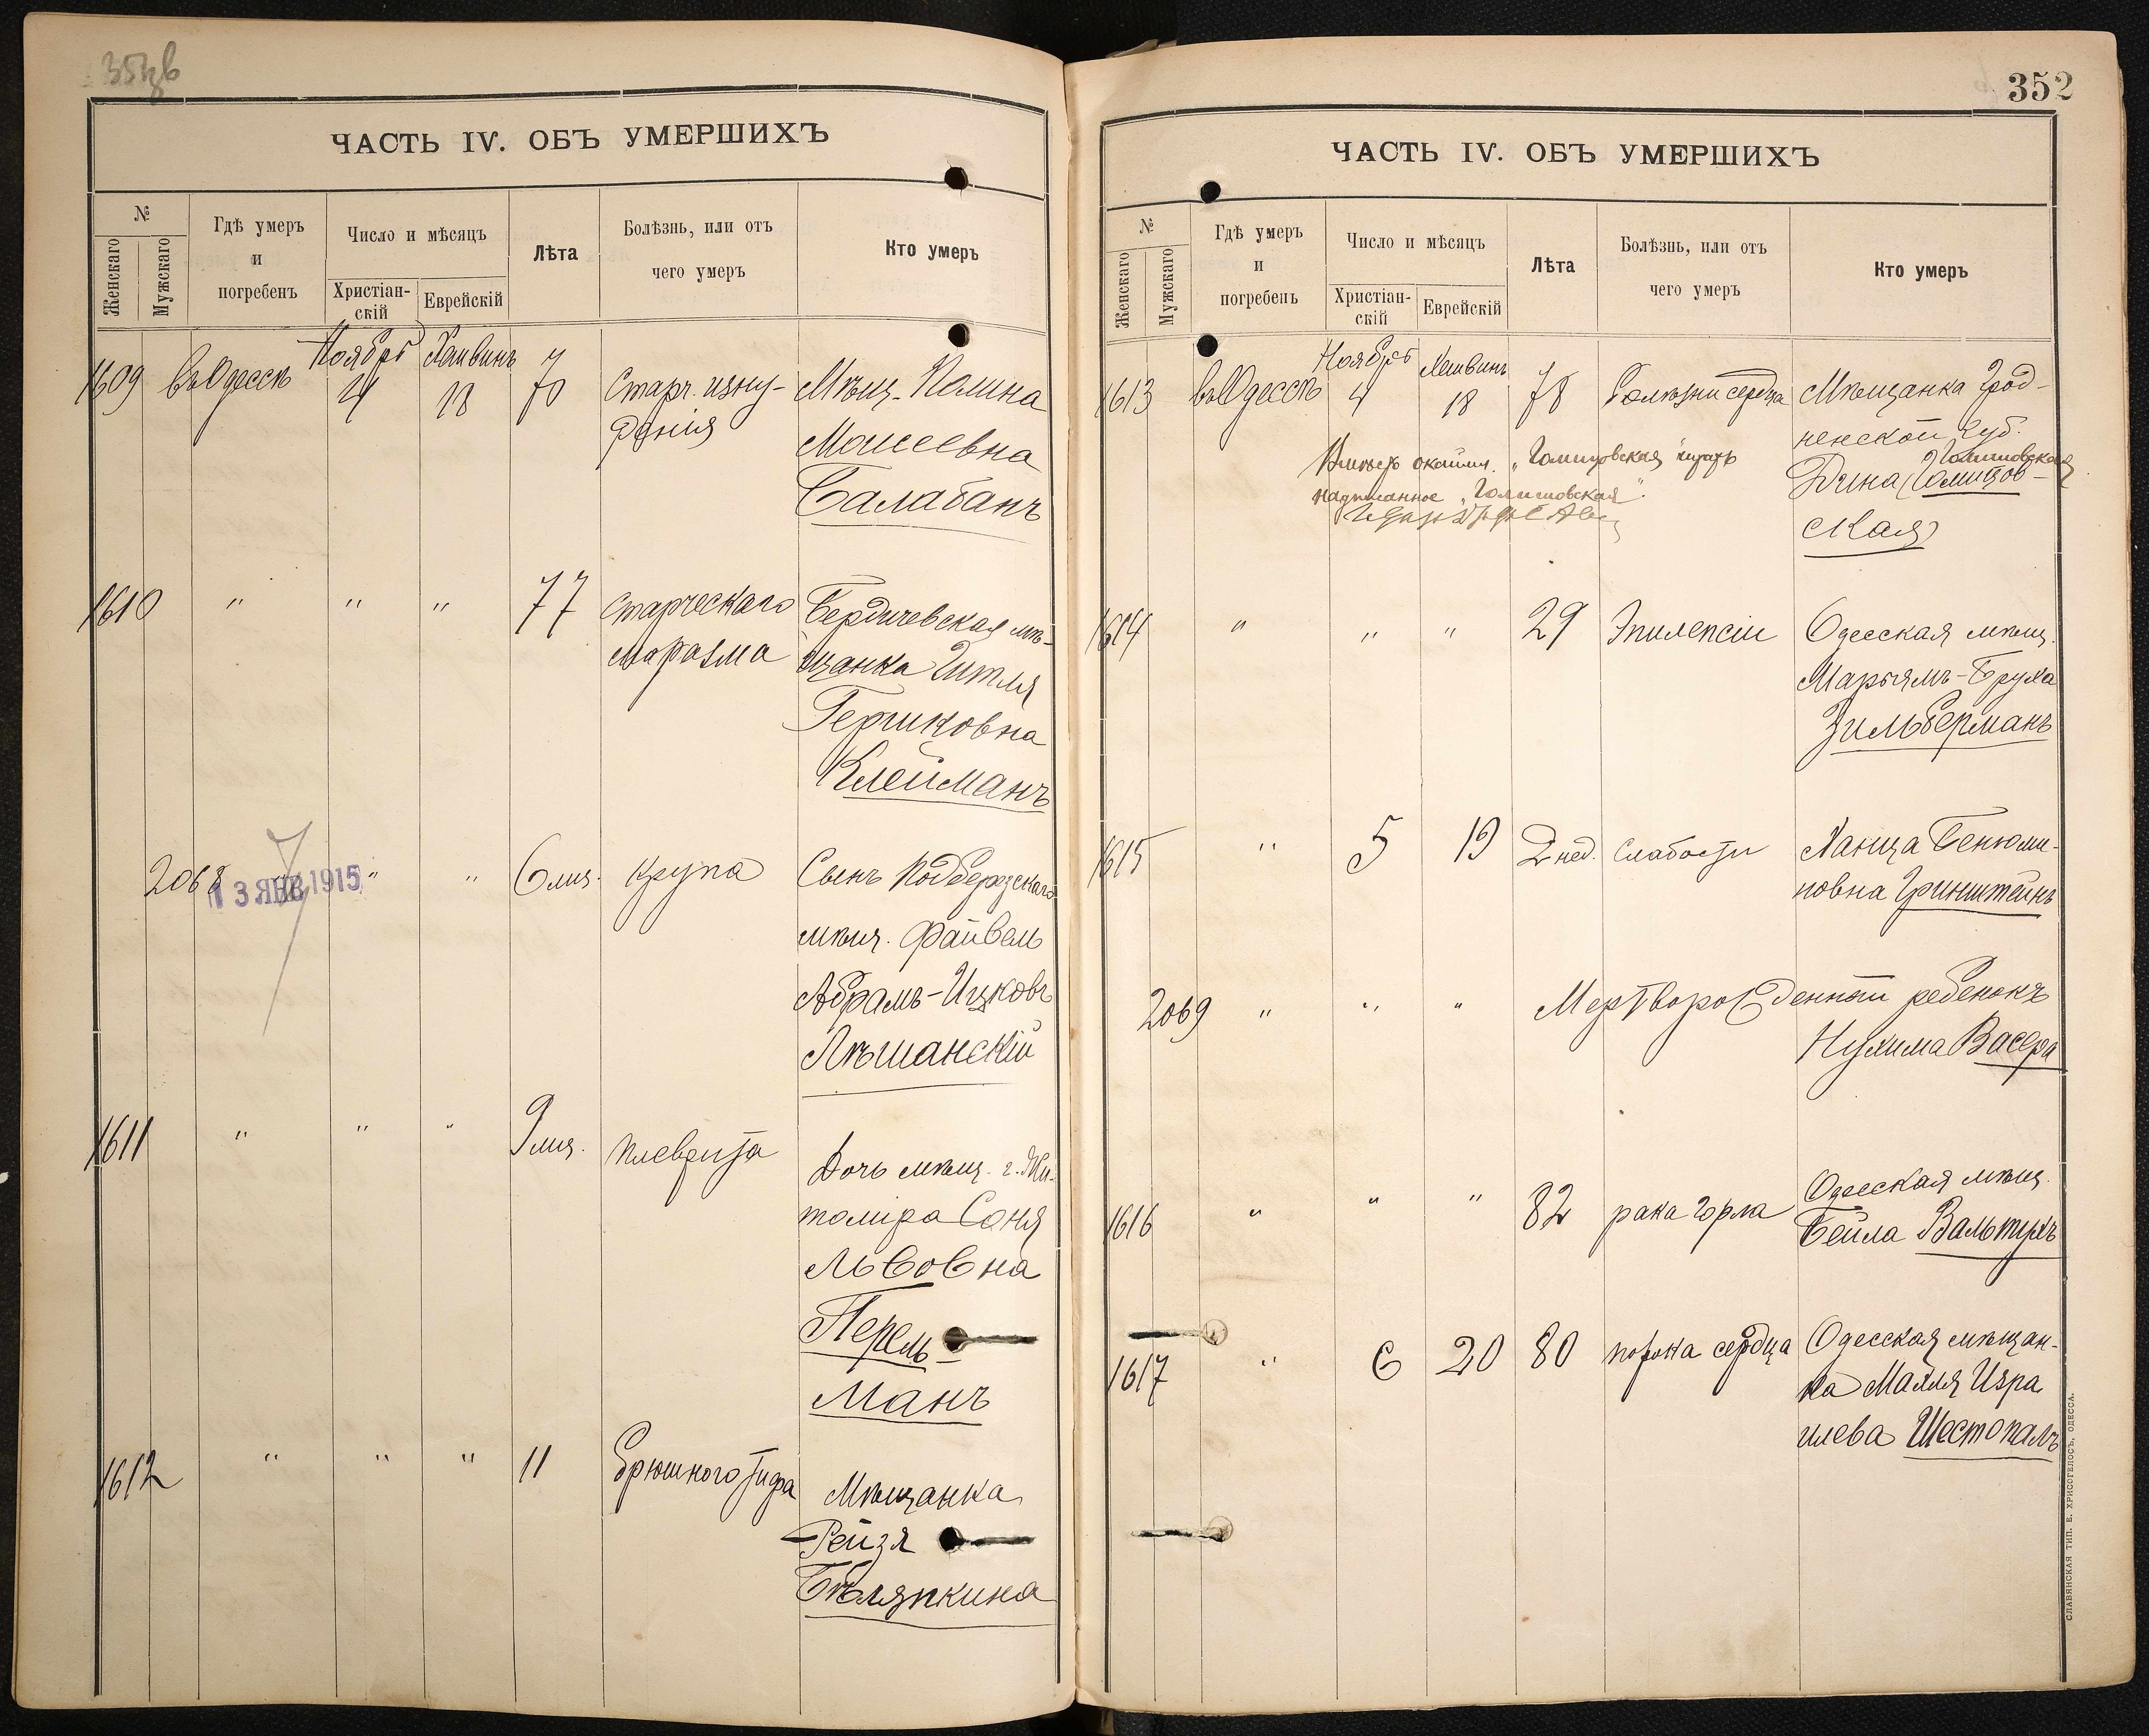 ЧАСТЬ IV. ОБЪ УМЕРШИХЪ
№
Женскаго
Мужскаго
Гдѣ умеръ
и
погребенъ
Число и мѣсяцъ
Христіан-
скій
Еврейскій
Лѣта
Болѣзнь, или отъ
чего умеръ
Кто умеръ
Ноябрь Хешвинъ
1609 въ Одессѣ 4 18 70 Старч. изну- Мѣщ. Полина
рѣнія Моисеевна
Балабанъ
1610 " " " 77 старческаго Бердичевская мѣ-
маразма щанка Гитля
Гершковна
Клейманъ
2068 " " " 6 мѣс. крупа Сынъ Подберезскаго
13 ЯНВ 1915
мѣщ. Файвель
Абрамъ-Ицковъ
Лѣшанскій
1611 " " " 9 мѣс. плеврита Дочь мѣщ. г. Жи-
томира Соня
Львовна
Перель-
манъ
1612 " " " 11 Брюшного тифа Мѣщанка
Рейзя
Бѣляпкина
352
ЧАСТЬ IV. ОБЪ УМЕРШИХЪ
№
Женскаго
Мужскаго
Гдѣ умеръ
и
погребенъ
Число и мѣсяцъ
Христіан-
скій
Еврейскій
Лѣта
Болѣзнь, или отъ
чего умеръ
Кто умеръ
Ноябрь Хешвинъ
1613 въ Одессѣ 4 18 78 Болѣзни сердца Мѣщанка Грод-
ненской губ.
Вмѣсто „Гомицовская" читать
надписанное „Голишовская".
Голишовская
Дина (Гомицов-
ская)
1614 " " " 29 Эпилепсіи Одесская мѣщ.
Марьямъ-Бруха
Зильберманъ
1615 " 5 19 2 нед. слабости Ханца Бенюми-
новна Гринштейнъ
2069 " " " Мертворожденный ребенокъ
Нухима Васера
1616 " " " 82 рака горла Одесская мѣщ.
Бейла Вальтухъ
1617 " 6 20 80 порока сердца Одесская мѣщан-
ка Малля Изра
илева Шестопалъ
СЛАВЯНСКАЯ ТИП. Е. ХРИСОГЕЛОСЪ, ОДЕССА.